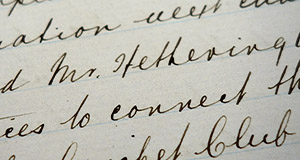 ation next
d Mr. Hethering
ices to connect th
Cricket Club